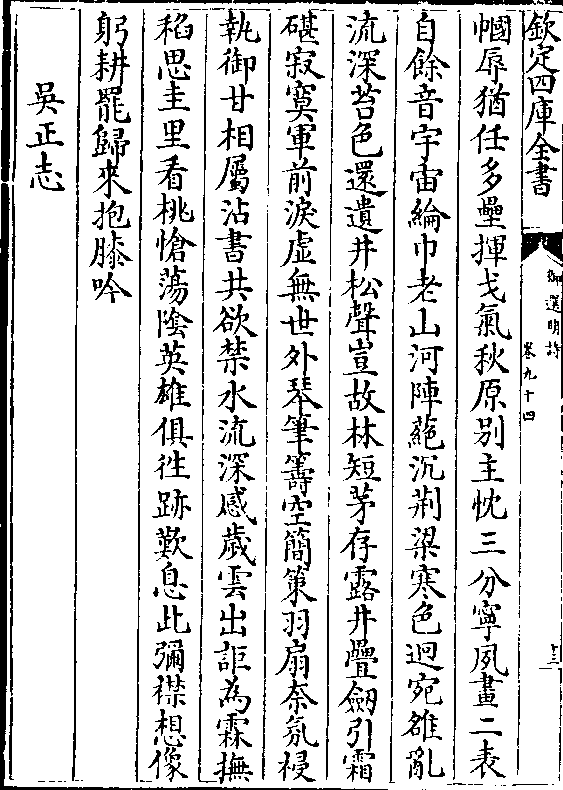 欽定四庫全書
御選明詩
卷九十四
十三
幗辱猶任多壘揮戈氣秋原別主忱三分寧夙畫二表
自餘音宇宙綸巾老山河陣蓜沉荆梁寒色迥宛雒亂
流深苔色還遺井松聲豈故林短茅存露井疊劒引霜
碪寂寞軍前淚虛無世外琴筆籌空簡策羽扇奈氛祲
執御甘相屬沾書共欲禁水流深感歲雲出詎為霖撫
稻思圭里看桃愴蕩陰英雄俱徃跡歎息此彌襟想像
躬耕罷歸來抱膝吟
吳正志